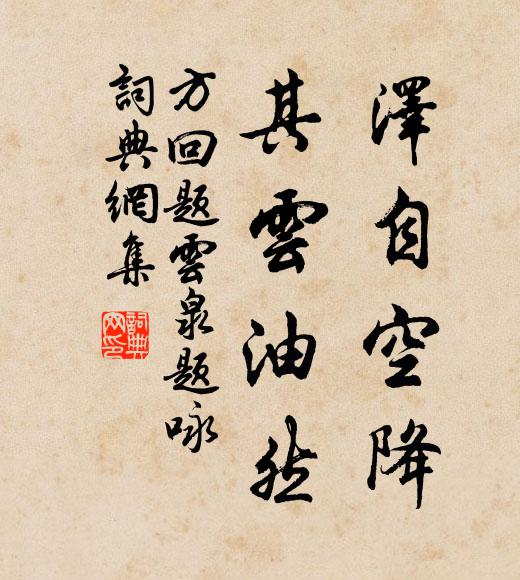 澤自空降
其雲油然
方回題雲泉題咏
詞典網集
詞典網印